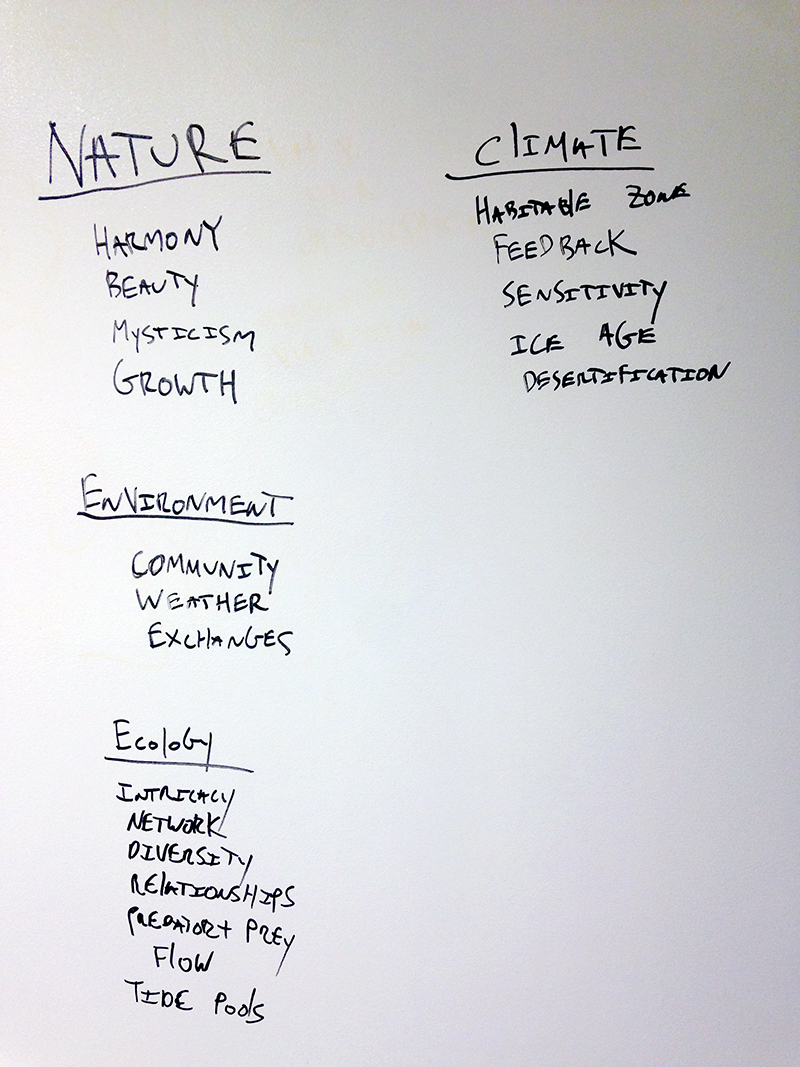 NATURE
HARMONY
BEAUTY
MYSTICISM
GROWTH
ENVIRONMENT
COMMUNITY
WEATHER
EXCHANGES
Ecology
INTRICACY
NETWORK
DIVERSITY
RELATIONSHIPS
PREDATOR + PREY
FLOW
TIDE POOLS
CLIMATE
HABITABLE ZONE
FEEDBACK
SENSITIVITY
ICE AGE
DESERTIFICATION